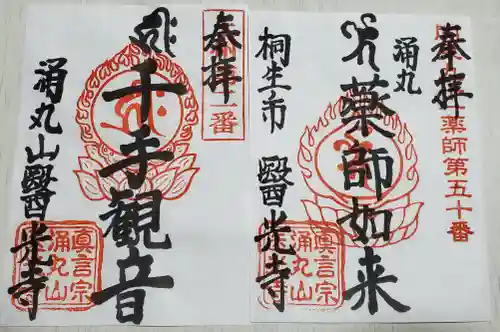 奉拝
千手観音
涌丸山醫光寺
二番
真言宗
涌丸山
奉拝
薬師第五十番
涌丸
薬師如来
桐生市
醫光寺
真言宗
涌丸山